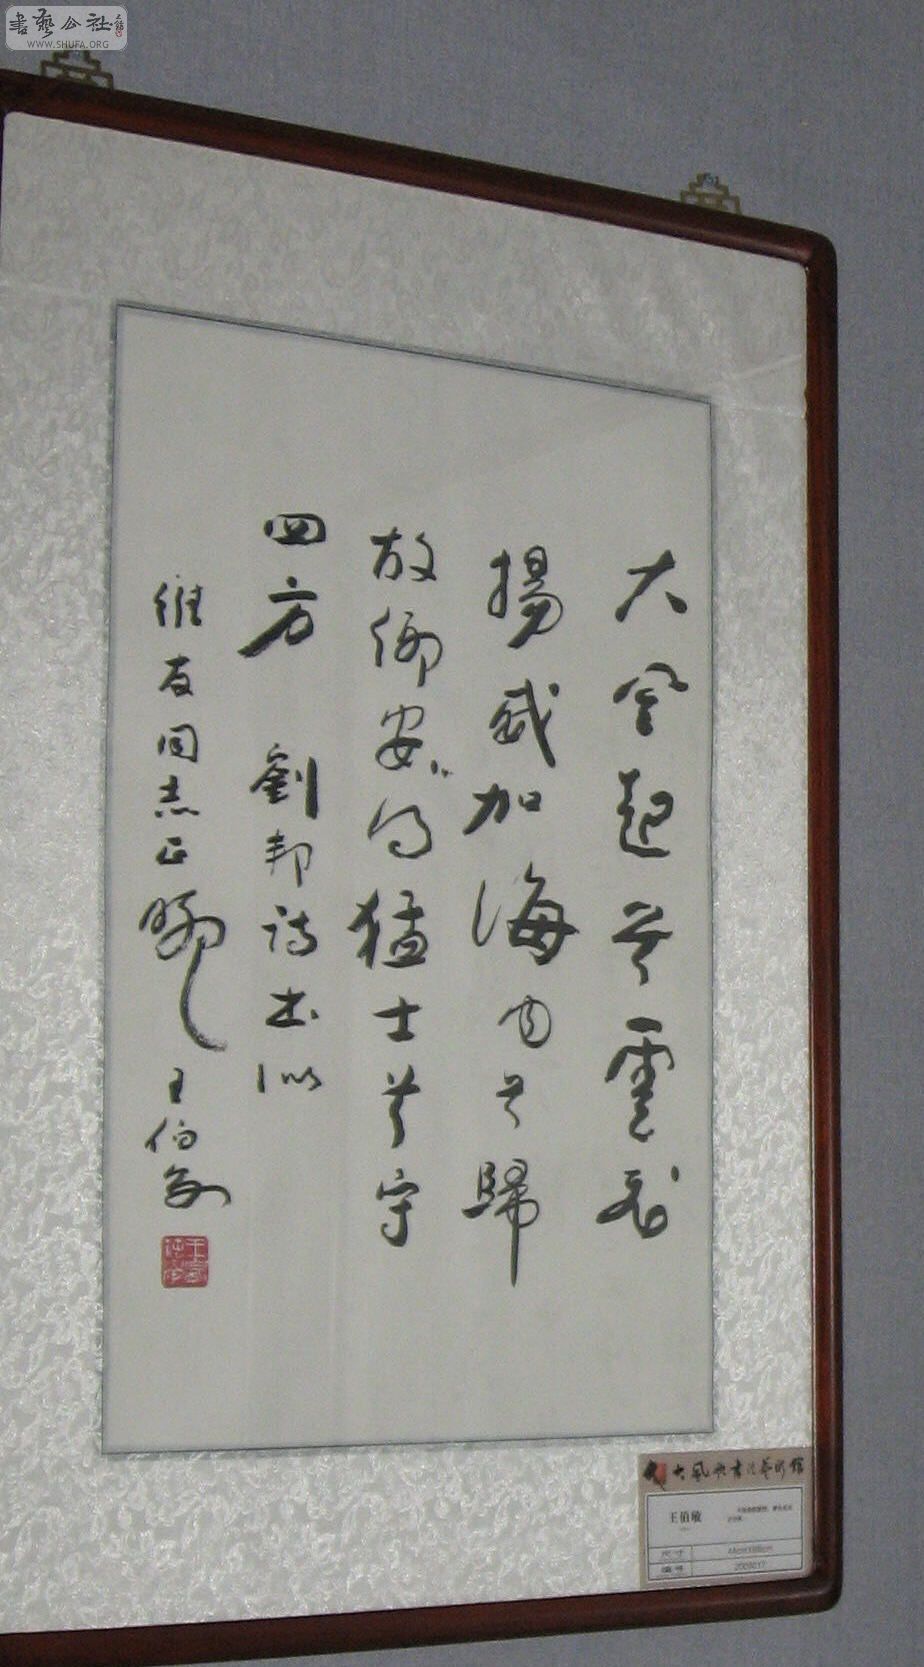 書藝公社
WWW.SHUFA.ORG
大風起兮雲飛
揚威加海内兮歸
故鄉安得猛士兮守
四方 劉邦詩書似
維友同志正腕 王伯敏
大風歌書法藝術館
王伯敏
尺寸
编号